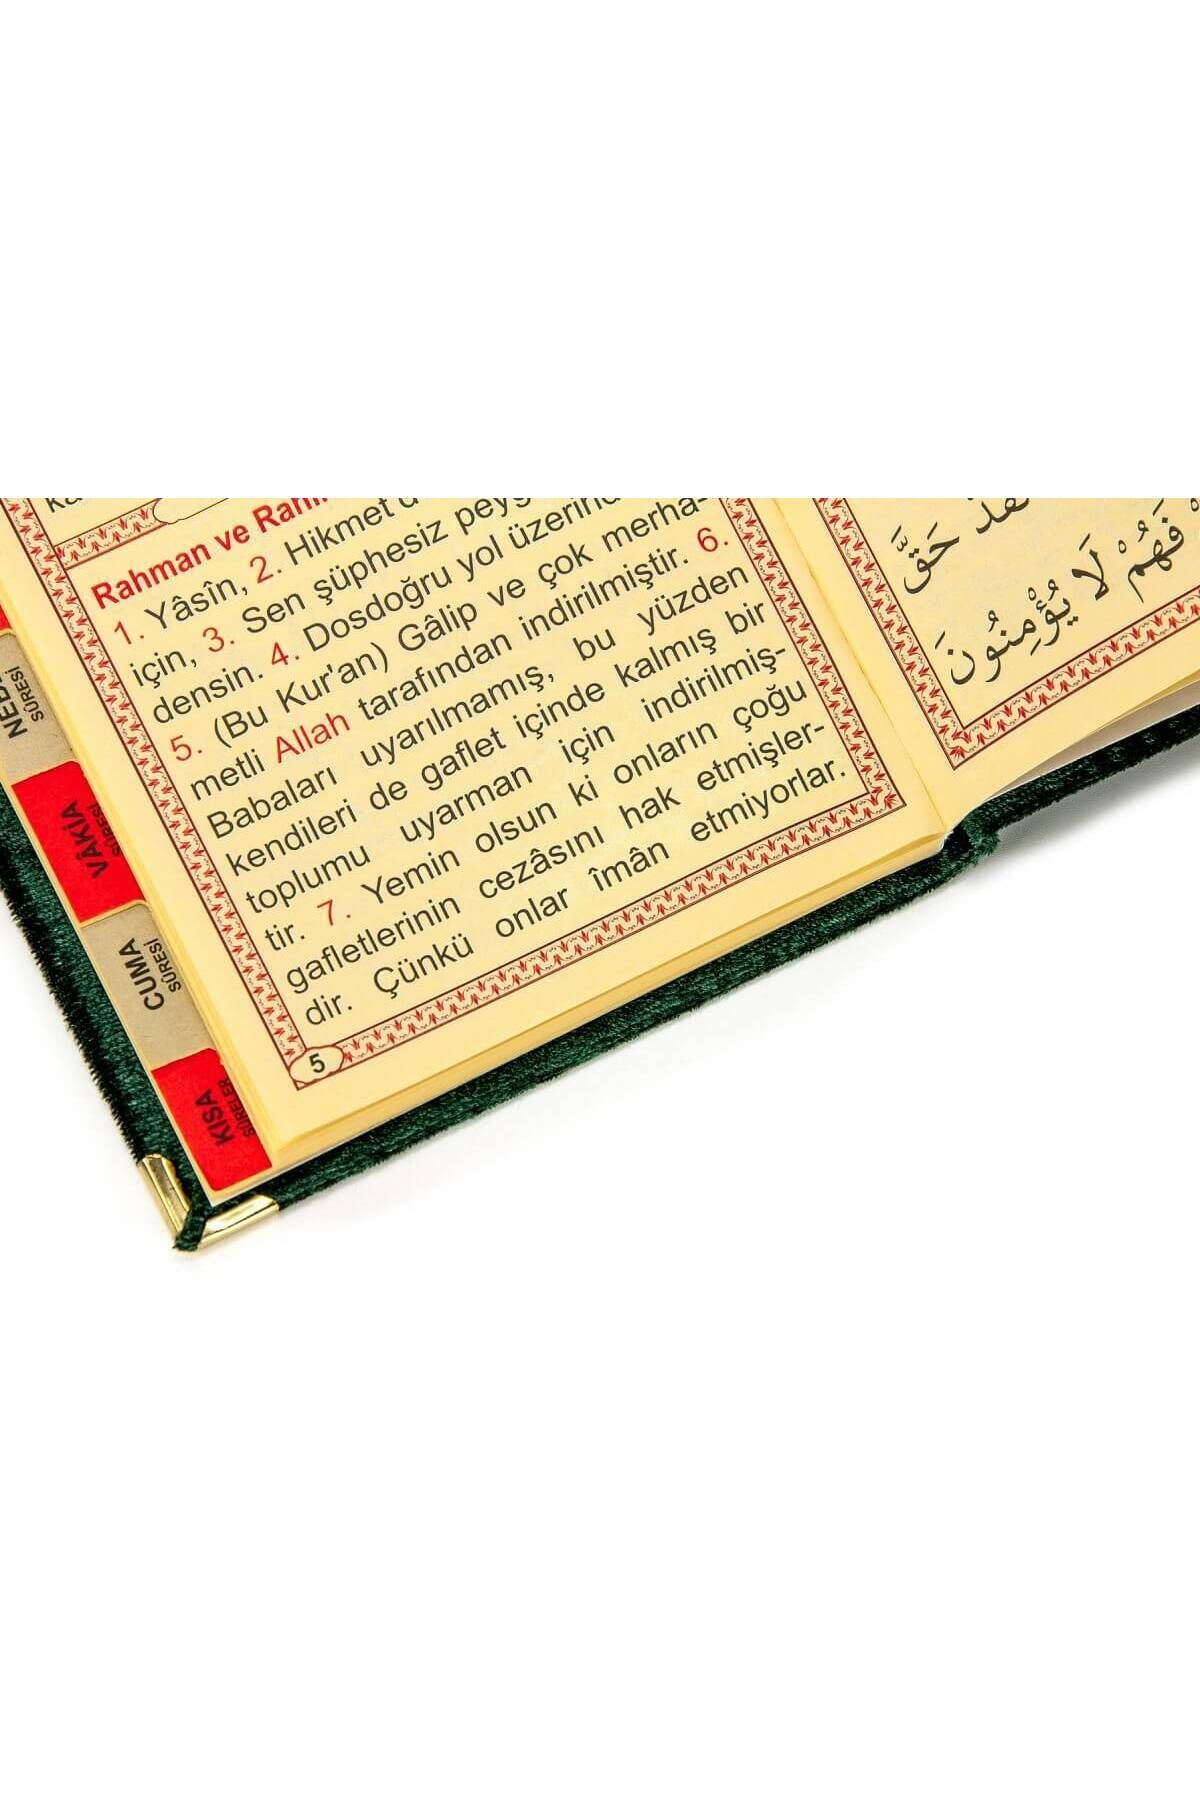 Rahman ve
1. Yâsîn, 2. Hikmet
için, 3. Sen şüphesiz
densin. 4. Dosdoğru yol
5. (Bu Kur'an) Gâlip ve çok merha-
metli Allah tarafından indirilmiştir. 6.
Babaları uyarılmamış, bu yüzden
kendileri de gaflet içinde kalmış bir
toplumu uyarman için indirilmiş-
tir. 7. Yemin olsun ki onların çoğu
gafletlerinin cezâsını hak etmişler-
dir. Çünkü onlar îmân etmiyorlar.
5
حَقَّ
فَهُمْ لَا يُؤْمِنُونَ
SÛRESİ
VÂKIA
SÛRESİ
CUMA
SÛRESİ
KISA
SÛRELER